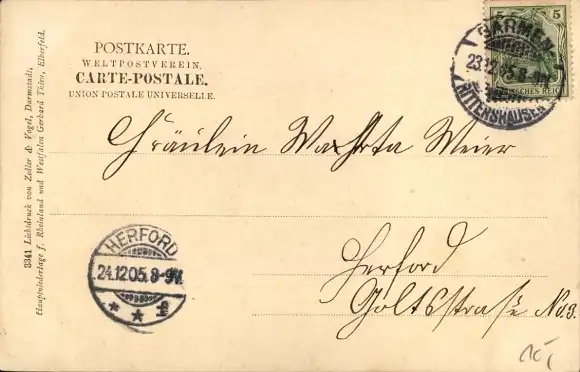 POSTKARTE.
WELTPOSTVEREIN.
CARTE-POSTALE.
UNION POSTALE UNIVERSELLE.
5 5
DEUTSCHES REICH
BARMEN-
23.12.05.8-9N.
RITTERSHAUSEN
3341 Lichtdruck von Zedler & Vogel, Darmstadt.
Hauptniederlage f. Rheinland und Westfalen Gerhard Thien, Elberfeld.
Fräulein Martha Meier
HERFORD
24.12.05.8-9V.
Herford
Goltsstraße No 3.